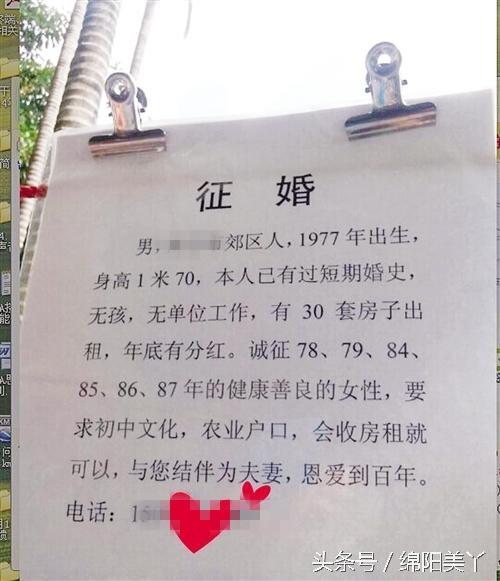 征 婚
男,市郊区人,1977 年出生,
身高1 米 70,本人己有过短期婚史,
无孩,无单位工作,有 30 套房子出
租,年底有分红。诚征 78、79、84、
85、86、87 年的健康善良的女性,要
求初中文化,农业户口,会收房租就
可以,与您结伴为夫妻,恩爱到百年。
电话:15
头条号 / 绵阳美丫